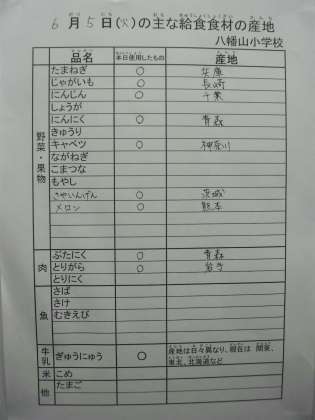 6月5日(火)の主な給食食材の産地
八幡山小学校
品名 本日使用したもの 産地
野菜・果物
たまねぎ ○ 兵庫
じゃがいも ○ 長崎
にんじん ○ 千葉
しょうが
にんにく ○ 青森
きゅうり
キャベツ ○ 神奈川
ながねぎ
こまつな
もやし
さやいんげん ○ 茨城
メロン ○ 熊本
肉
ぶたにく ○ 青森
とりがら ○ 岩手
とりにく
魚
さば
さけ
むきえび
牛乳 ぎゅうにゅう ○ 産地は日々異なり、現在は 関東、
東北、北海道など
米 こめ
他 たまご